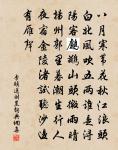 八月寒葦花秋江浪頭
白北風吹五兩誰是潯
陽客鸕鶿山頭微雨晴
揚州郭裏暮潮生行人
夜宿金陵渚試聽沙邊
有雁聲
李頎送劉昱